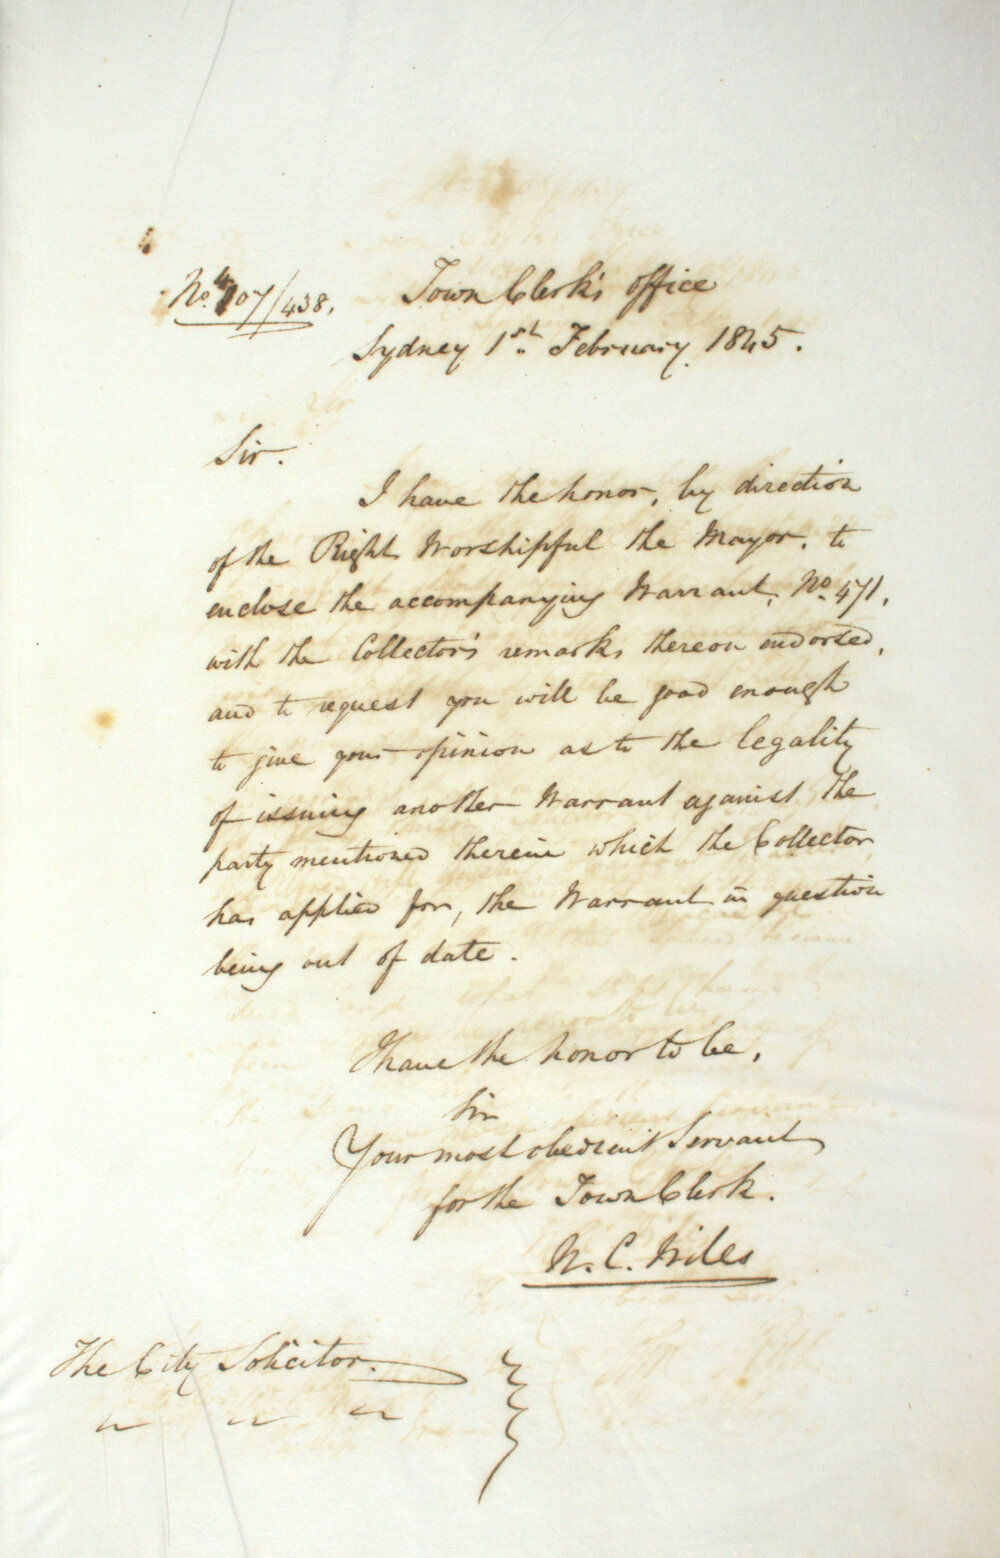 No. 407/438.
Town Clerk's office
Sydney 1st. February 1845.
Sir.
I have the honor, by direction
of the Right Worshipful the Mayor, to
enclose the accompanying Warrant, No. 471,
with the Collector's remarks thereon endorsed,
and to request you will be good enough
to give your opinion as to the legality
of issuing another Warrant against the
party mentioned therein which the Collector
has applied for, the Warrant in question
being out of date.
I have the honor to be,
Sir
Your most obedient Servant
for the Town Clerk.
W. C. Wiles
The City Solicitor.